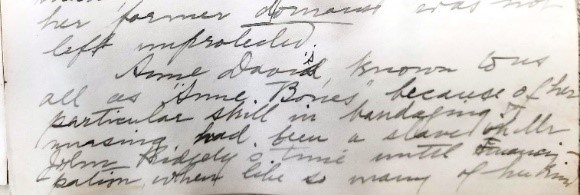 her former domains was not
left unprotected.
Anne Davis, known to us
all as "Anne Bones" because of her
particular skill in bandaging &
nursing, had been a slave of Mr
John Ridgely's time until Emanci-
pation when like so many of